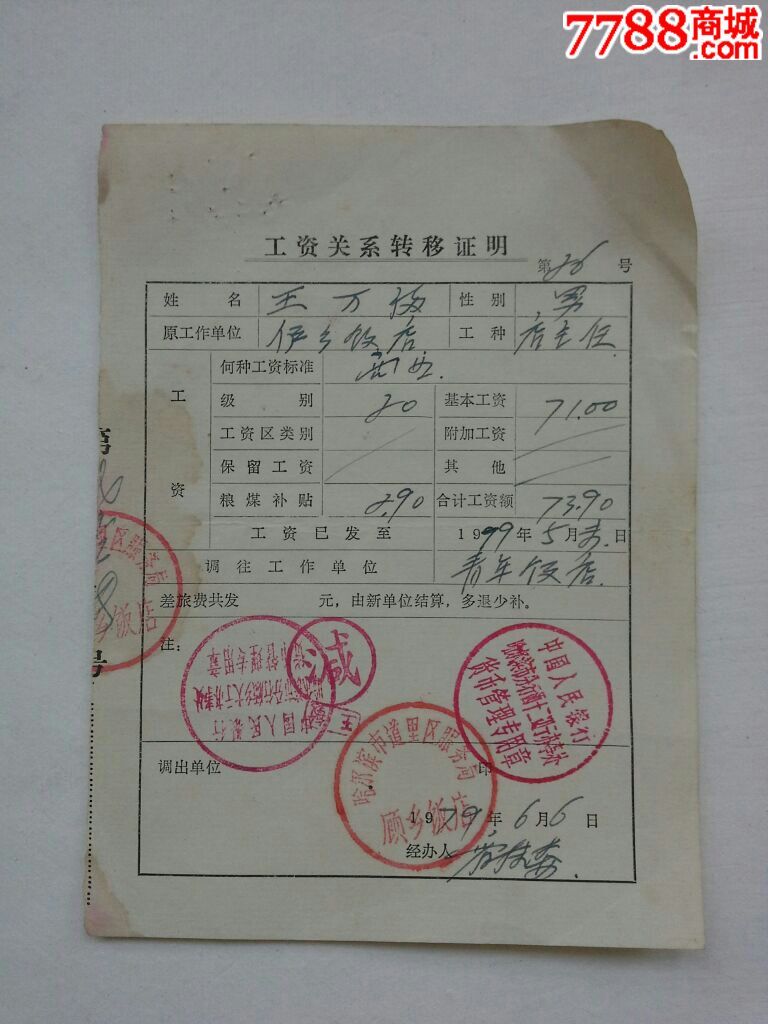 7788商城
.com
工资关系转移证明
第26号
姓名 王万福 性别 男
原工作单位 伊乡饭店 工种 店主任
何种工资标准 商业
工资
级别 20 基本工资 71.00
工资区类别 附加工资
保留工资 其他
粮煤补贴 2.90 合计工资额 73.90
工资已发至 1979年5月末日
调往工作单位 青年饭店
差旅费共发 元，由新单位结算，多退少补。
注：
减
王
中国人民银行
货币管理专用章
中国人民银行
货币管理专用章
哈尔滨市道里区服务局
顾乡饭店
区服务局
乡饭店
第
号
调出单位 印
1979年6月6日
经办人